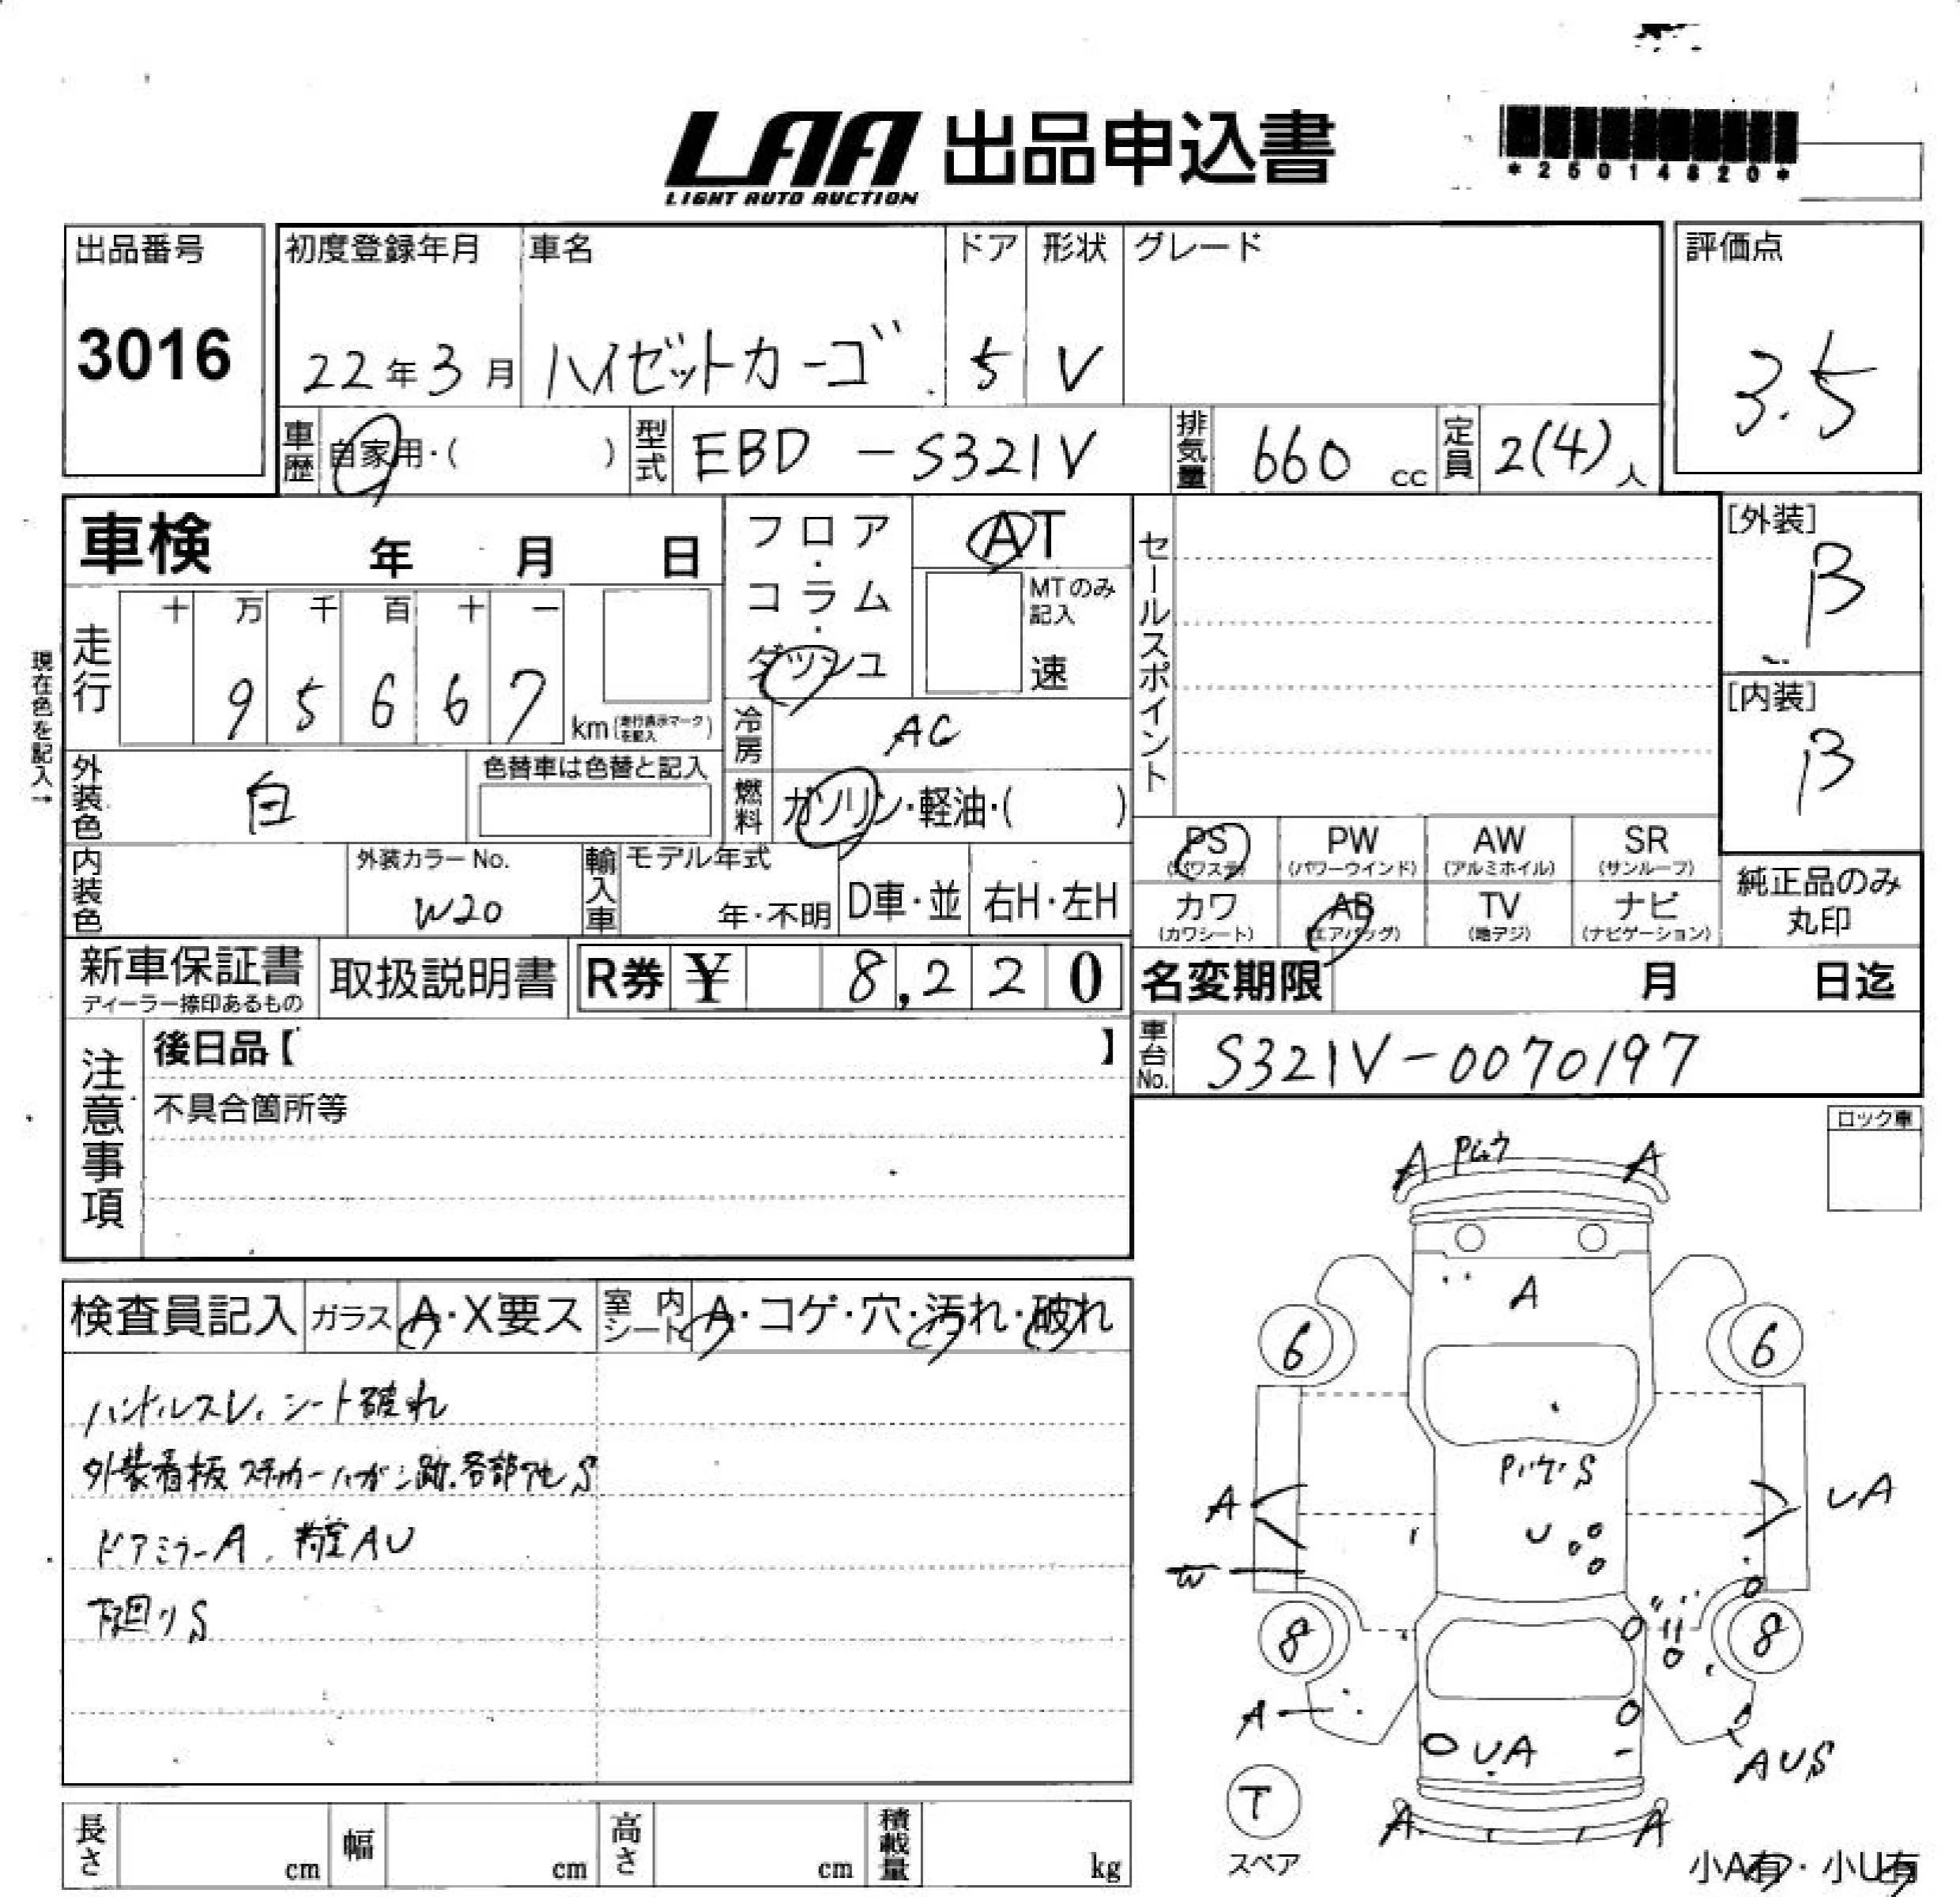 LAA 出品申込書
LIGHT AUTO AUCTION
*25014820*
出品番号
3016
初度登録年月
22年3月
車名
ハイゼットカーゴ
ドア
5
形状
V
グレード
評価点
3.5
車歴 自家用・( )
型式 EBD-S321V
排気量 660 cc
定員 2(4)人
車検 年 月 日
フロア・コラム・ダッシュ
AT
MTのみ記入
速
セールスポイント
[外装]
B
[内装]
B
現在色を記入→
走行
十 万 千 百 十 一
9 5 6 6 7
km(走行表示マークを記入)
冷房 AC
燃料 ガソリン・軽油・( )
外装色 白
色替車は色替と記入
内装色
外装カラーNo.
W20
輸入車
モデル年式
年・不明
D車・並
右H・左H
PS (パワステ)
PW (パワーウインド)
AW (アルミホイル)
SR (サンルーフ)
カワ (カワシート)
AB (エアバッグ)
TV (地デジ)
ナビ (ナビゲーション)
純正品のみ
丸印
新車保証書
ディーラー捺印あるもの
取扱説明書
R券 ¥ 8,220
名変期限 月 日迄
車台No. S321V-0070197
注意事項
後日品【 】
不具合箇所等
ロック車
検査員記入
ガラス A・X要ス
室内シート A・コゲ・穴・汚れ・破れ
ハンドルスレ、シート破れ
外装看板ステッカーハガシ跡.各部サビS
ドアミラーA, 荷室AU
下回りS
A A
A
6 6
S
A
U
UA
W
8 8
A
UA
AUS
T
スペア
A A
小A有・小U有
長さ cm
幅 cm
高さ cm
積載量 kg